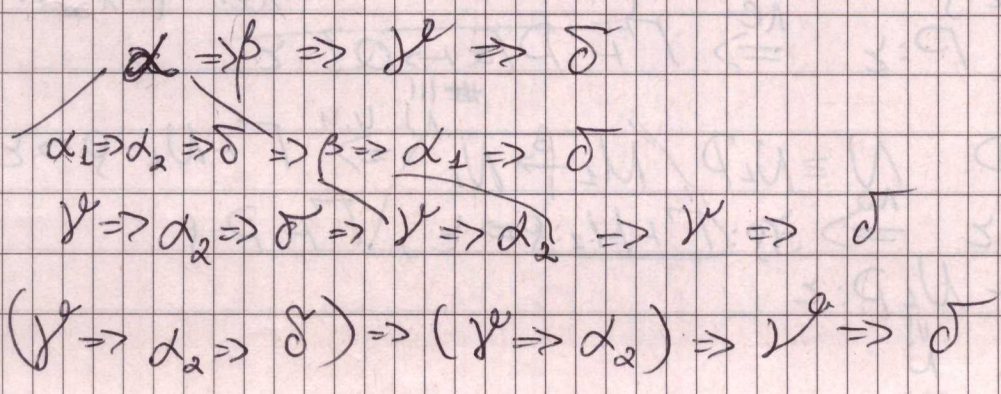 α ⇒ β ⇒ γ ⇒ δ
α₁ ⇒ α₂ ⇒ δ ⇒ β ⇒ α₁ ⇒ δ
γ ⇒ α₂ ⇒ δ ⇒ γ ⇒ α₂ ⇒ γ ⇒ δ
(γ ⇒ α₂ ⇒ δ) ⇒ (γ ⇒ α₂) ⇒ γ ⇒ δ